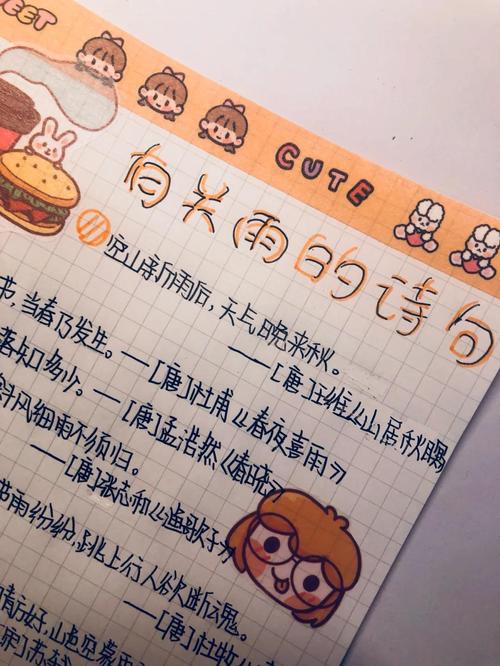 EET
CUTE
有关雨的诗句
空山新雨后，天气晚来秋。
——[唐]王维《山居秋暝
，当春乃发生。——[唐]杜甫《春夜喜雨》
落知多少。——[唐]孟浩然《春晓》
斜风细雨不须归。
——[唐]张志和《渔歌子》
雨纷纷，路上行人欲断魂。
——[唐]杜牧
晴方好，山色空蒙雨